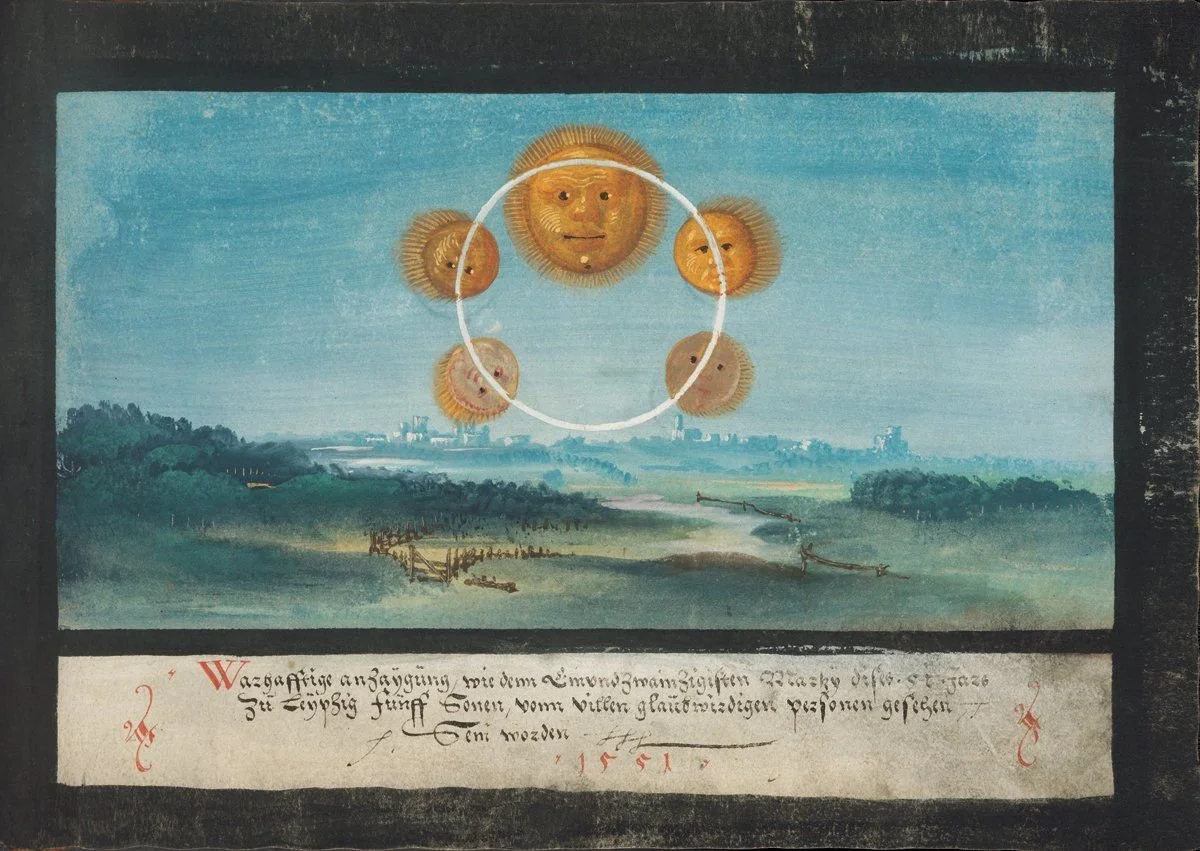 Warhafftige anzaygung, wie denn Einundzwainzigisten Martzy dises · 51 · Jars
Zu Leyphig funff Sonen, vonn villen glaubwirdigen personen gesehen
Sein worden
· 1551 ·